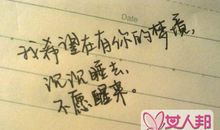 Date
我希望在有你的梦境,
沉沉睡去,
不愿醒来。
女人邦